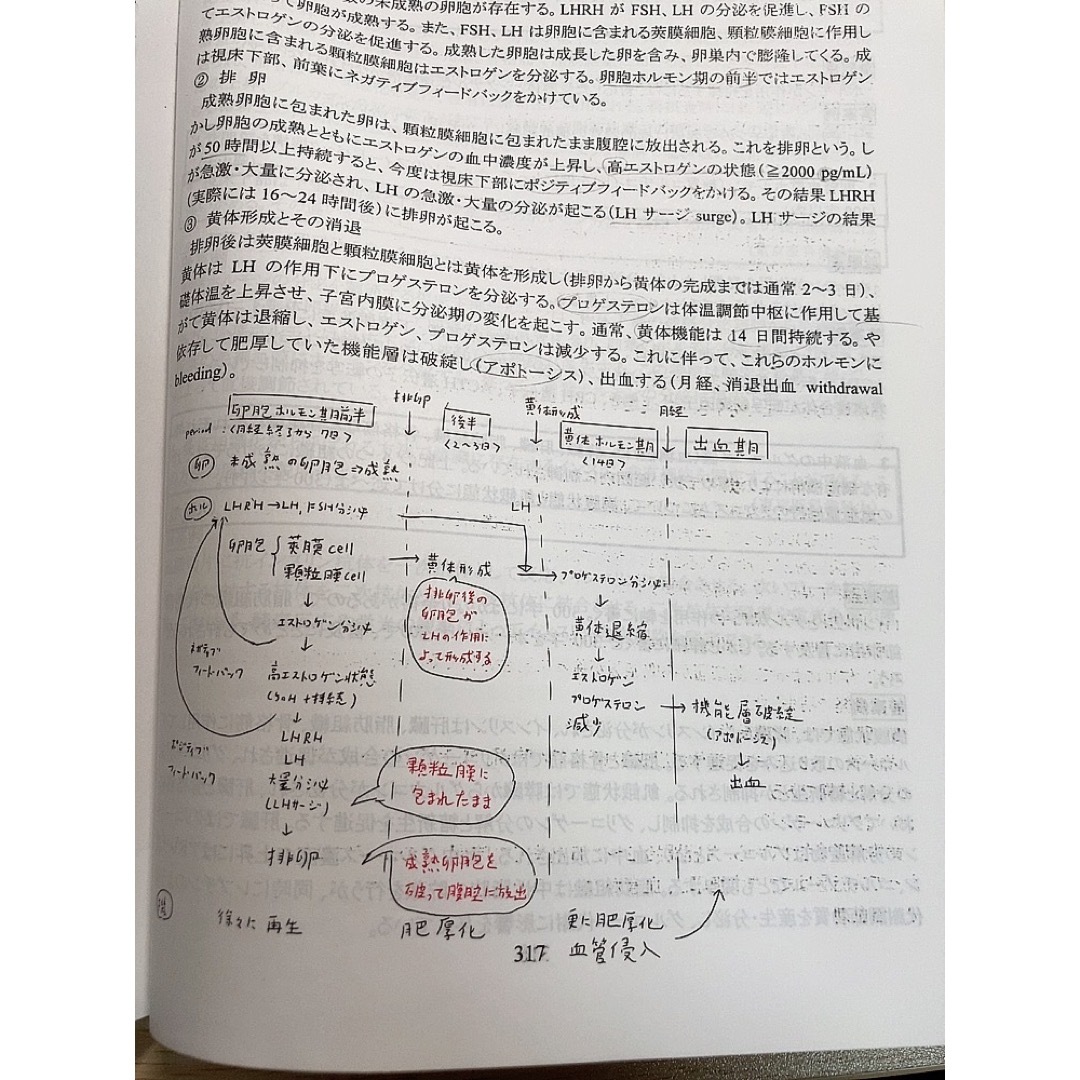 して卵胞が成熟する。また、FSH、LH は卵胞に含まれる莢膜細胞、顆粒膜細胞に作用し
数の未成熟の卵胞が存在する。LHRH が FSH、LH の分泌を促進し、FSH の
てエストロゲンの分泌を促進する。成熟した卵胞は成長した卵を含み、卵巣内で膨隆してくる。成
熟卵胞に含まれる顆粒膜細胞はエストロゲンを分泌する。卵胞ホルモン期の前半ではエストロゲン
は視床下部、前葉にネガティブフィードバックをかけている。
② 排 卵
成熟卵胞に包まれた卵は、顆粒膜細胞に包まれたまま腹腔に放出される。これを排卵という。し
かし卵胞の成熟とともにエストロゲンの血中濃度が上昇し、高エストロゲンの状態(≧2000 pg/mL)
が50 時間以上持続すると、今度は視床下部にポジティブフィードバックをかける。その結果 LHRH
が急激・大量に分泌され、LH の急激・大量の分泌が起こる(LH サージ surge)。LH サージの結果
(実際には 16〜24 時間後)に排卵が起こる。
③ 黄体形成とその消退
排卵後は莢膜細胞と顆粒膜細胞とは黄体を形成し(排卵から黄体の完成までは通常 2〜3 日)、
黄体は LH の作用下にプロゲステロンを分泌する。プロゲステロンは体温調節中枢に作用して基
礎体温を上昇させ、子宮内膜に分泌期の変化を起こす。通常、黄体機能は 14 日間持続する。や
がて黄体は退縮し、エストロゲン、プロゲステロンは減少する。これに伴って、これらのホルモンに
依存して肥厚していた機能層は破綻し(アポトーシス)、出血する(月経、消退出血 withdrawal
bleeding)。
排卵 黄体形成 月経
卵胞ホルモン期前半 後半 黄体ホルモン期 出血期
period : <月経終了から 7日> <2〜3日> <14日>
卵 未成熟の卵胞⇒成熟
ホル LHRH→LH, FSH分泌 LH
卵胞 莢膜 cell
顆粒膜cell → 黄体形成 → プロゲステロン分泌
↓
エストロゲン分泌
ネガティブ
フィードバック
高エストロゲン状態
(50H +持続)
↓
LHRH
LH
大量分泌
(LHサージ)
↓
排卵
ポジティブ
フィードバック
排卵後の
卵胞が
LHの作用に
よって形成する
顆粒膜に
包まれたまま
成熟卵胞を
破って腹腔に放出
↓
黄体退縮
↓
エストロゲン
プロゲステロン
減少
→ 機能層破綻
(アポトーシス)
↓
出血
徐々に再生 肥厚化 更に肥厚化
血管侵入
317